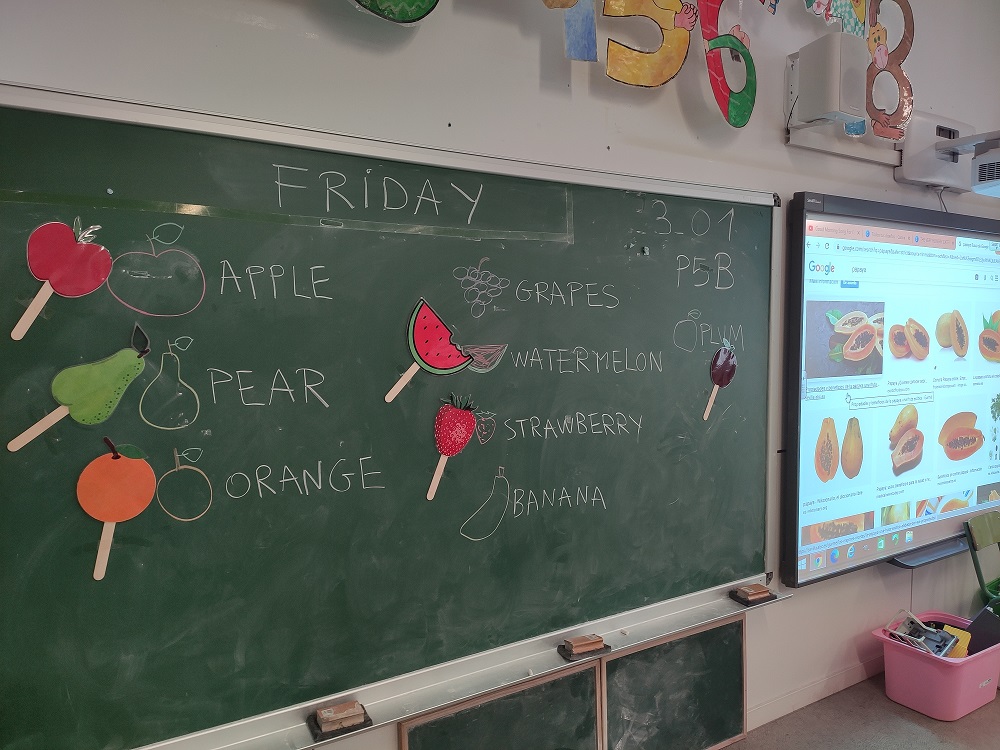 FRiDAY
3-01
P5B
APPLE
PEAR
ORANGE
GRAPES
WATERMELON
STRAWBERRY
BANANA
PLUM
Google
papaya